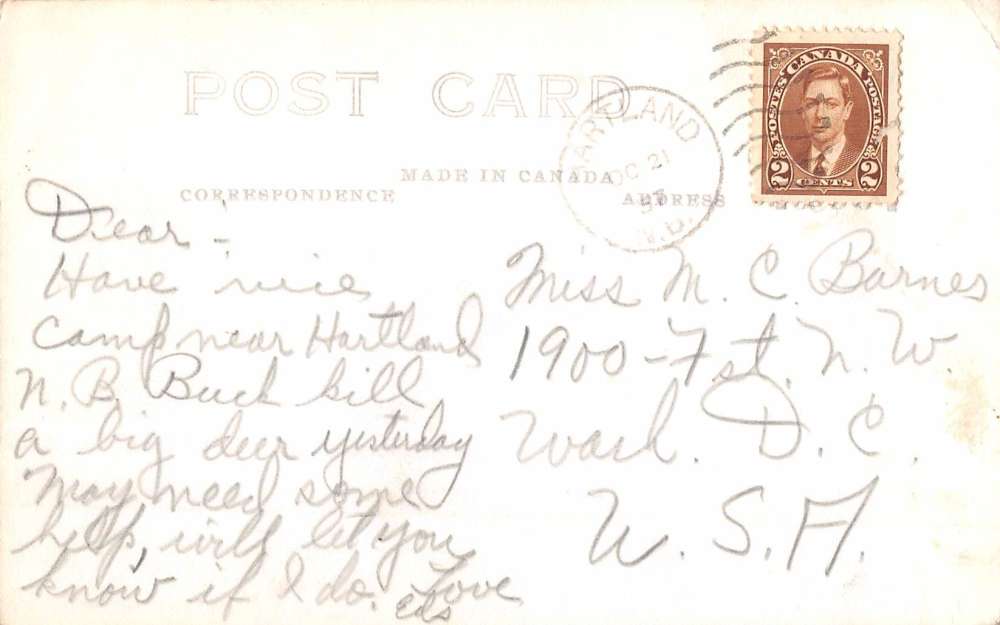 POST CARD
CANADA
POSTES POSTAGE
2 CENTS 2
HARTLAND
OC 21
37
N.B.
MADE IN CANADA
CORRESPONDENCE
ADDRESS
Dear -
Have nice
camp near Hartland
N. B. Buck kill
a big deer yesterday
May need some
help, will let you
know if I do. Love
Miss M. C Barnes
1900 - F st. N. W.
Wash. D. C.
U. S. A.